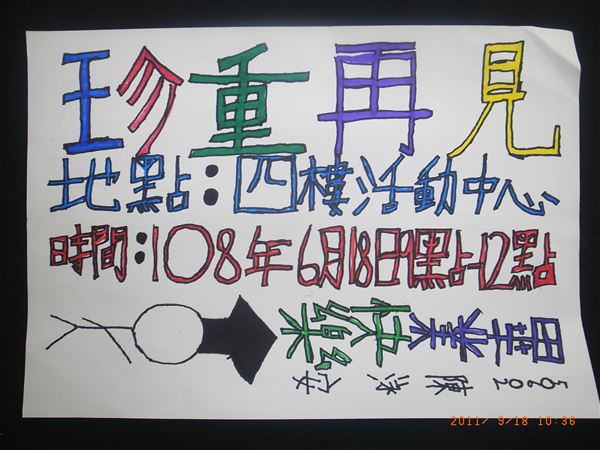 珍重再見
地點:四樓活動中心
時間:108年6月18日9點-12點
畢業快樂
陳泳安